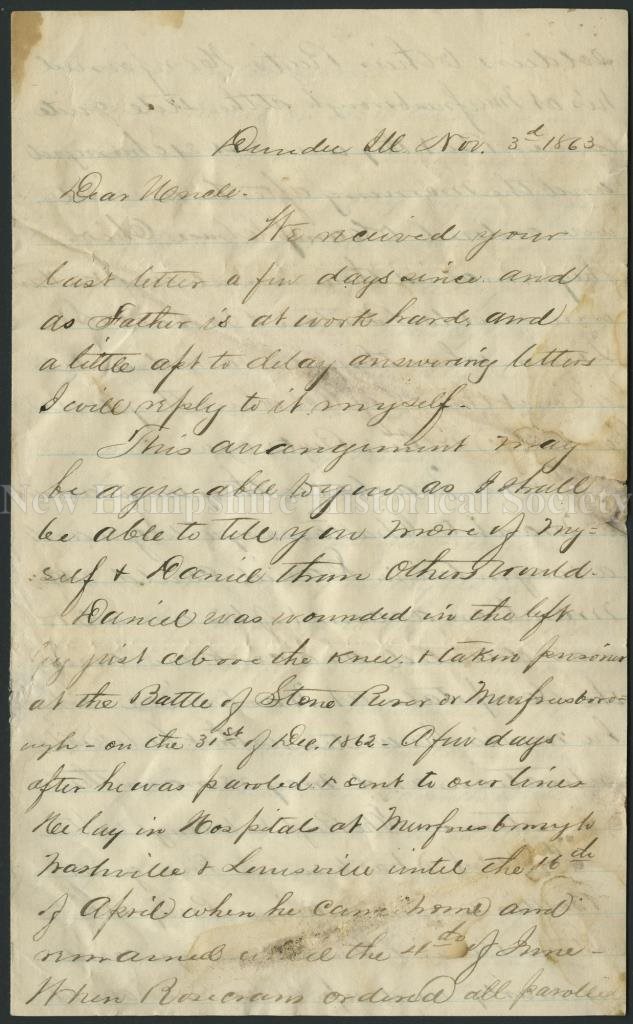 Dundee Ill Nov. 3d 1863
Dear Uncle.
We received your
last letter a few days since and
as Father is at work hard, and
a little apt to delay answering letters
I will reply to it myself.
This arrangement may
be agreeable to you as I shall
New Hampshire Historical Society
be able to tell you more of my-
self & Daniel than others would.
Daniel was wounded in the left
leg just above the knee. & taken prisoner
at the Battle of Stone River or Murfreesboro-
ugh - on the 31st of Dec. 1862 - A few days
after he was paroled & sent to our lines
He lay in Hospitals at Murfreesborough
Nashville & Louisville until the 16th
of April when he came home and
remained until the 4th of June -
When Rosecrans ordered all paroled